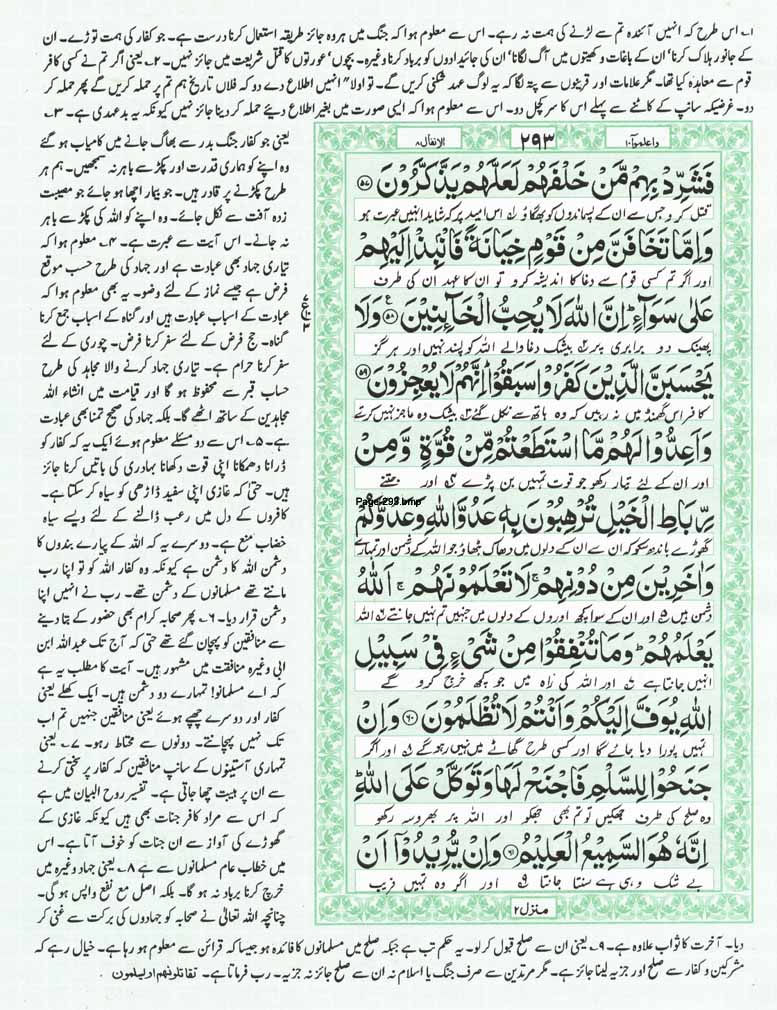 ۱۔ اس طرح کہ انہیں آئندہ تم سے لڑنے کی ہمت نہ رہے۔ اس سے معلوم ہوا کہ جنگ میں ہر وہ جائز طریقہ استعمال کرنا درست ہے۔ جو کفار کی ہمت توڑے۔ ان
کے جانور ہلاک کرنا' ان کے باغات و کھیتوں میں آگ لگانا' ان کی جائیدادوں کو برباد کرنا وغیرہ۔ بچوں' عورتوں کا قتل شریعت میں جائز نہیں۔ ۲۔ یعنی اگر تم نے کسی کافر
قوم سے معاہدہ کیا تھا۔ مگر علامات اور قرینوں سے پتہ لگا کہ یہ لوگ عہد شکنی کریں گے۔ تو اولاً" انہیں اطلاع دے دو کہ فلاں تاریخ ہم تم پر حملہ کریں گے پھر حملہ کر
دو۔ غرضیکہ سانپ کے کاٹنے سے پہلے اس کا سر کچل دو۔ اس سے معلوم ہوا کہ ایسی صورت میں بغیر اطلاع دیئے حملہ کر دینا جائز نہیں کیونکہ یہ بدعہدی ہے۔ ۳۔
واعلموا۱۰ ۲۹۳ الانفال۸
فَشَرِّدْ بِهِمْ مَّنْ خَلْفَهُمْ لَعَلَّهُمْ يَذَّكَّرُوْنَ ۵۷
قتل کرو جس سے ان کے پسماندوں کو بھگاؤ اس امید پر کہ شاید انہیں عبرت ہو
وَاِمَّا تَخَافَنَّ مِنْ قَوْمٍ خِيَانَةً فَانْۢبِذْ اِلَيْهِمْ
اور اگر تم کسی قوم سے دغا کا اندیشہ کرو تو ان کا عہد ان کی طرف
عَلٰى سَوَآءٍ اِنَّ اللّٰهَ لَا يُحِبُّ الْخَآئِنِيْنَ ۵۸ وَلَا
پھینک دو برابری پر بیشک دغا والے اللہ کو پسند نہیں اور ہرگز
يَحْسَبَنَّ الَّذِيْنَ كَفَرُوْا سَبَقُوْا اِنَّهُمْ لَا يُعْجِزُوْنَ ۵۹
کافر اس گھمنڈ میں نہ رہیں کہ وہ ہاتھ سے نکل گئے بیشک وہ عاجز نہیں کرتے
وَاَعِدُّوْا لَهُمْ مَّا اسْتَطَعْتُمْ مِّنْ قُوَّةٍ وَّمِنْ
اور ان کے لئے تیار رکھو جو قوت تمہیں بن پڑے اور جتنے
Page-293.bmp
رِّبَاطِ الْخَيْلِ تُرْهِبُوْنَ بِهٖ عَدُوَّ اللّٰهِ وَعَدُوَّكُمْ
گھوڑے باندھ سکو کہ ان سے ان کے دلوں میں دھاک بٹھاؤ جو اللہ کے دشمن اور تمہارے
وَاٰخَرِيْنَ مِنْ دُوْنِهِمْ لَا تَعْلَمُوْنَهُمْ اَللّٰهُ
دشمن ہیں اور ان کے سوا کچھ اوروں کے دلوں میں جنہیں تم نہیں جانتے اللہ
يَعْلَمُهُمْ وَمَا تُنْفِقُوْا مِنْ شَيْءٍ فِيْ سَبِيْلِ
انہیں جانتا ہے اور اللہ کی راہ میں جو کچھ خرچ کرو گے
اللّٰهِ يُوَفَّ اِلَيْكُمْ وَاَنْتُمْ لَا تُظْلَمُوْنَ ۶۰ وَاِنْ
تمہیں پورا دیا جائے گا اور کسی طرح گھاٹے میں نہیں رہو گے اور اگر
جَنَحُوْا لِلسَّلْمِ فَاجْنَحْ لَهَا وَتَوَكَّلْ عَلَى اللّٰهِ
وہ صلح کی طرف جھکیں تو تم بھی جھکو اور اللہ پر بھروسہ رکھو
اِنَّهٗ هُوَ السَّمِيْعُ الْعَلِيْمُ ۶۱ وَاِنْ يُّرِيْدُوْٓا اَنْ
بے شک وہی ہے سنتا جانتا اور اگر وہ تمہیں فریب
منزل۲
یعنی جو کفار جنگ بدر سے بھاگ جانے میں کامیاب ہو گئے
وہ اپنے کو ہماری قدرت اور پکڑ سے باہر نہ سمجھیں۔ ہم ہر
طرح پکڑنے پر قادر ہیں۔ جو بیمار اچھا ہو جائے جو مصیبت
زدہ آفت سے نکل جائے۔ وہ اپنے کو اللہ کی پکڑ سے باہر
نہ جانے۔ اس آیت سے عبرت ہے۔ ۴۔ معلوم ہوا کہ
تیاری جہاد بھی عبادت ہے اور جہاد کی طرح حسب موقع
فرض ہے جیسے نماز کے لئے وضو۔ یہ بھی معلوم ہوا کہ
عبادت کے اسباب عبادت ہیں اور گناہ کے اسباب جمع کرنا
گناہ۔ حج فرض کے لئے سفر کرنا فرض۔ چوری کے لئے
سفر کرنا حرام ہے۔ تیاری جہاد کرنے والا مجاہد کی طرح
حساب قبر سے محفوظ ہو گا اور قیامت میں انشاء اللہ
مجاہدین کے ساتھ اٹھے گا۔ بلکہ جہاد کی صحیح تمنا بھی عبادت
ہے۔ ۵۔ اس سے دو مسئلے معلوم ہوئے ایک یہ کہ کفار کو
ڈرانا دھمکانا اپنی قوت دکھانا بہادری کی باتیں کرنا جائز
ہیں۔ حتیٰ کہ غازی اپنی سفید ڈاڑھی کو سیاہ کر سکتا ہے۔
کافروں کے دل میں رعب ڈالنے کے لئے ویسے سیاہ
خضاب منع ہے۔ دوسرے یہ کہ اللہ کے پیارے بندوں کا
دشمن اللہ کا دشمن ہے کیونکہ وہ کفار اللہ کو تو اپنا رب
مانتے تھے مسلمانوں کے دشمن تھے۔ رب نے انہیں اپنا
دشمن قرار دیا۔ ۶۔ پھر صحابہ کرام بھی حضور کے بتا دینے
سے منافقین کو پہچان گئے تھے حتیٰ کہ آج تک عبداللہ ابن
ابی وغیرہ منافقت میں مشہور ہیں۔ آیت کا مطلب یہ ہے
کہ اے مسلمانو! تمہارے دو دشمن ہیں۔ ایک کھلے یعنی
کفار اور دوسرے چھپے ہوئے یعنی منافقین جنہیں تم اب
تک نہیں پہچانتے۔ دونوں سے محتاط رہو۔ ۷۔ یعنی
تمہاری آستینوں کے سانپ منافقین کہ کفار پر سختی کرنے
سے ان پر ہیبت چھا جاتی ہے۔ تفسیر روح البیان میں ہے
کہ اس سے مراد کافر جنات بھی ہیں کیونکہ غازی کے
گھوڑے کی آواز سے ان جنات کو خوف آتا ہے۔ اس
میں خطاب عام مسلمانوں سے ہے ۸۔ یعنی جہاد وغیرہ میں
خرچ کرنا برباد نہ ہو گا۔ بلکہ اصل مع نفع واپس ہو گی۔
چنانچہ اللہ تعالیٰ نے صحابہ کو جہادوں کی برکت سے غنی کر
دیا۔ آخرت کا ثواب علاوہ ہے۔ ۹۔ یعنی ان سے صلح قبول کر لو۔ یہ حکم تب ہے جبکہ صلح میں مسلمانوں کا فائدہ ہو جیسا کہ قرائن سے معلوم ہو رہا ہے۔ خیال رہے کہ
مشرکین و کفار سے صلح اور جزیہ لینا جائز ہے۔ مگر مرتدین سے صرف جنگ یا اسلام نہ ان سے صلح جائز نہ جزیہ۔ رب فرماتا ہے۔ تقاتلونهم او یسلمون